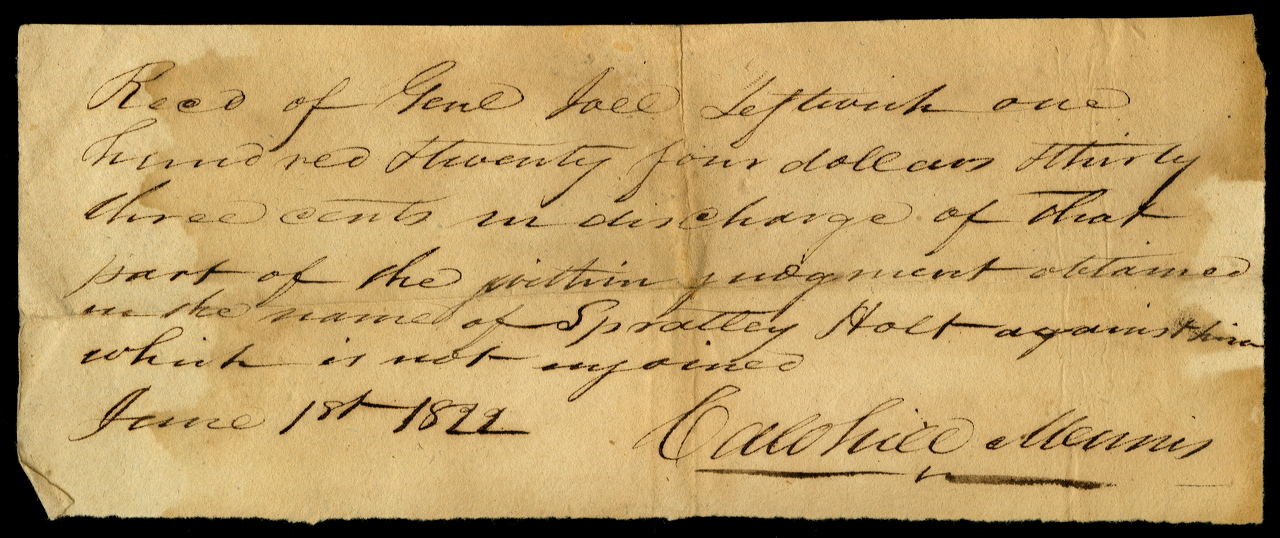 Recd of Genl Joel Leftwich one
hundred & twenty four dollars & thirty
three cents in discharge of that
part of the within judgment obtained
in the name of Spratley Holt against him
which is not injoined
June 1st 1822 Callohill Mennis